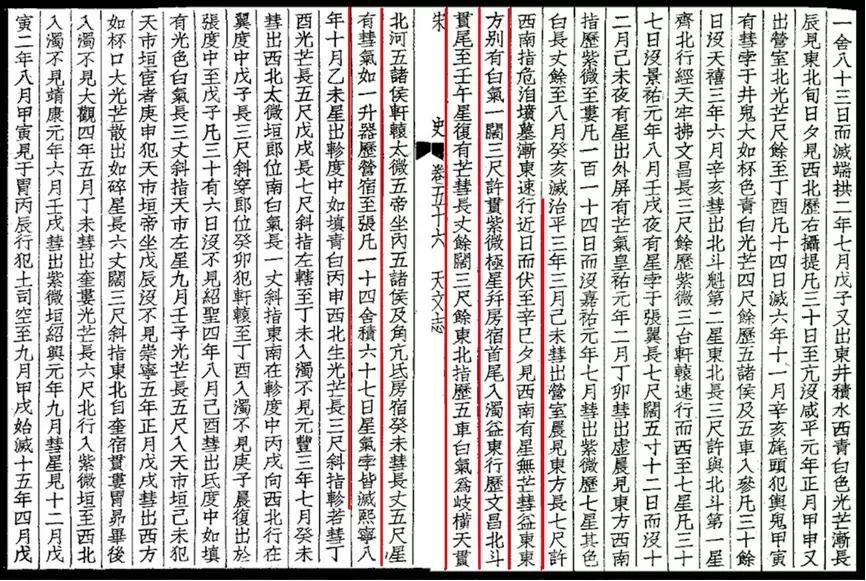 一舍八十三日而滅端拱二年七月戊子又出東井積水西青白色光芒漸長
辰見東北旬日夕見西北歷右攝提凡三十日至亢沒咸平元年正月甲申又
出營室北光芒尺餘至丁酉凡十四日滅六年十一月辛亥旄頭犯輿鬼甲寅
有彗孛于井鬼大如杯色青白光芒四尺餘歷五諸侯及五車入參凡三十餘
日沒天禧三年六月辛亥彗出北斗魁第二星東北長三尺許與北斗第一星
齊北行經天牢拂文昌長三丈餘歷紫微三台軒轅速行而西至七星凡三十
七日沒景祐元年八月壬戌夜有星孛于張翼長七尺闊五寸十二日而沒十
二月己未夜有星出外屏有芒氣皇祐元年二月丁卯彗出虛晨見東方西南
指歷紫微至婁凡一百一十四日而沒嘉祐元年七月彗出紫微歷七星其色
白長丈餘至八月癸亥滅治平三年三月己未彗出營室晨見東方長七尺許
西南指危洎墳墓漸東速行近日而伏至辛巳夕見西南有星無芒彗益東東
方別有白氣一闊三尺許貫紫微極星并房宿首尾入濁益東行歷文昌北斗
貫尾至壬午星復有芒彗長丈餘闊三尺餘東北指歷五車白氣爲岐橫天貫
宋 史 卷五十六 天文志
北河五諸侯軒轅太微五帝坐內五諸侯及角亢氐房宿癸未彗長丈五尺星
有彗氣如一升器歷營宿至張凡一十四舍積六十七日星氣孛皆滅熙寧八
年十月乙未星出軫度中如填青白丙申西北生光芒長三尺斜指軫若彗丁
酉光芒長五尺戊戌長七尺斜指左轄至丁未入濁不見元豐三年七月癸未
彗出西北太微垣郎位南白氣長一丈斜指東南在軫度中丙戌向西北行在
翼度中戊子長三尺斜穿郎位癸卯犯軒轅至丁酉入濁不見庚子晨復出於
張度中至戊子凡三十有六日沒不見紹聖四年八月己酉彗出氐度中如填
有光色白氣長三丈斜指天市左星九月壬子光芒長五尺入天市垣己未犯
天市垣宦者庚申犯天市垣帝坐戊辰沒不見崇寧五年正月戊戌彗出西方
如杯口大光芒散出如碎星長六丈闊三尺斜指東北自奎宿貫婁胃昴畢後
入濁不見大觀四年五月丁未彗出奎婁光芒長六尺北行入紫微垣至西北
入濁不見靖康元年六月壬戌彗出紫微垣紹興元年九月彗星見十二月戊
寅二年八月甲寅見于胃丙辰行犯土司空至九月甲戌始滅十五年四月戊